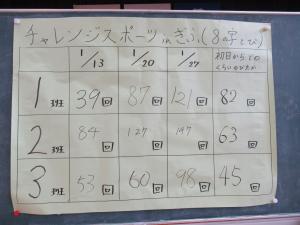 チャレンジスポーツinぎふ(8の字とび)
1/13 1/20 1/27 初日からどのくらいのびたか
1班 39回 87回 121回 82回
2班 84回 127回 147回 63回
3班 53回 60回 98回 45回